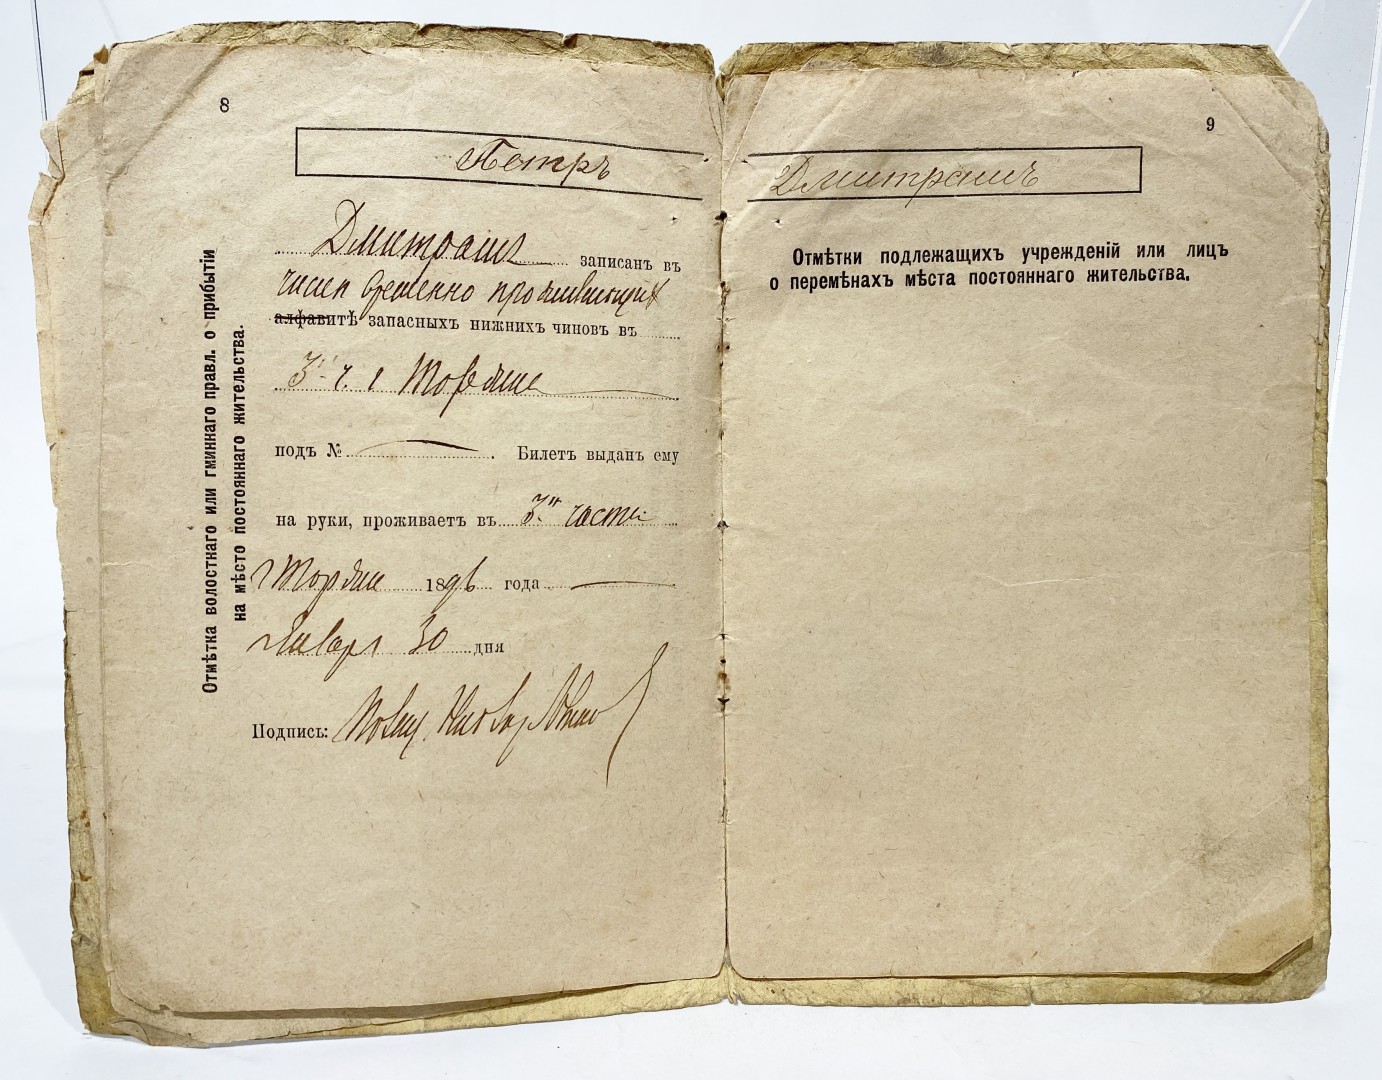 8
Петръ
Отмѣтка волостнаго или гминнаго правл. о прибытіи
на мѣсто постояннаго жительства.
Дмитрашъ записанъ въ
числѣ временно проживающихъ
алфавитѣ запасныхъ нижнихъ чиновъ въ
3й ч. г
подъ № . Билетъ выданъ ему
на руки, проживаетъ въ 3й части
1896 года
Января 30 дня
Подпись:
9
Дмитрашъ
Отмѣтки подлежащихъ учрежденій или лицъ
о перемѣнахъ мѣста постояннаго жительства.